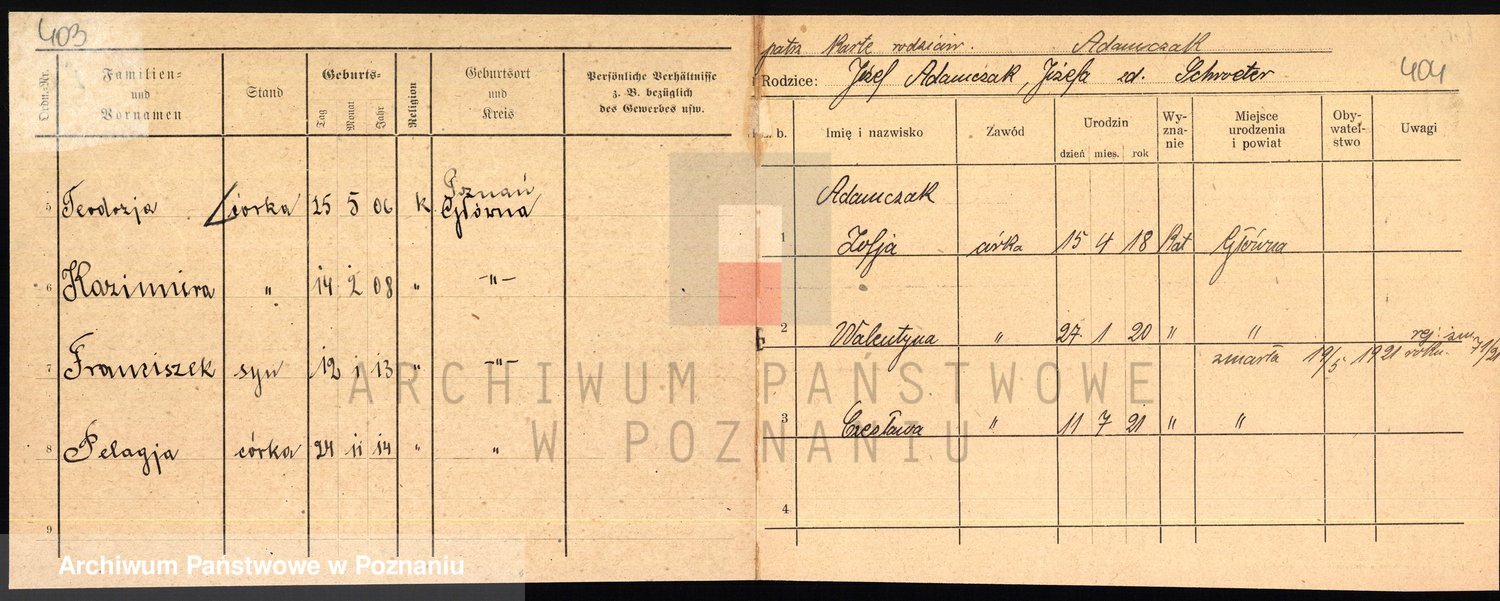 403
Ordn.-Nr. Familien- und Vornamen Stand Geburts- Tag Monat Jahr Religion Geburtsort und Kreis Persönliche Verhältnisse z. B. bezüglich des Gewerbes usw.
5 Teodozja córka 25 5 06 k Poznań Główna
6 Kazimiera " 14 2 08 " —"—
7 Franciszek syn 12 1 13 " —"—
8 Pelagja córka 24 11 14 " "
9
patrz Kartę rodziców. Adamczak
404
Rodzice: Józef Adamczak, Józefa zd. Schroeter
L. b. Imię i nazwisko Zawód Urodzin dzień mies. rok Wyznanie Miejsce urodzenia i powiat Obywatelstwo Uwagi
Adamczak
1 Zofja córka 15 4 18 Kat Główna
2 Walentyna " 27. 1 20 " "
zmarła 19/5 1921 roku.
3 Czesława " 11 7 21 " "
4
ARCHIWUM PAŃSTWOWE
W POZNANIU
Archiwum Państwowe w Poznaniu